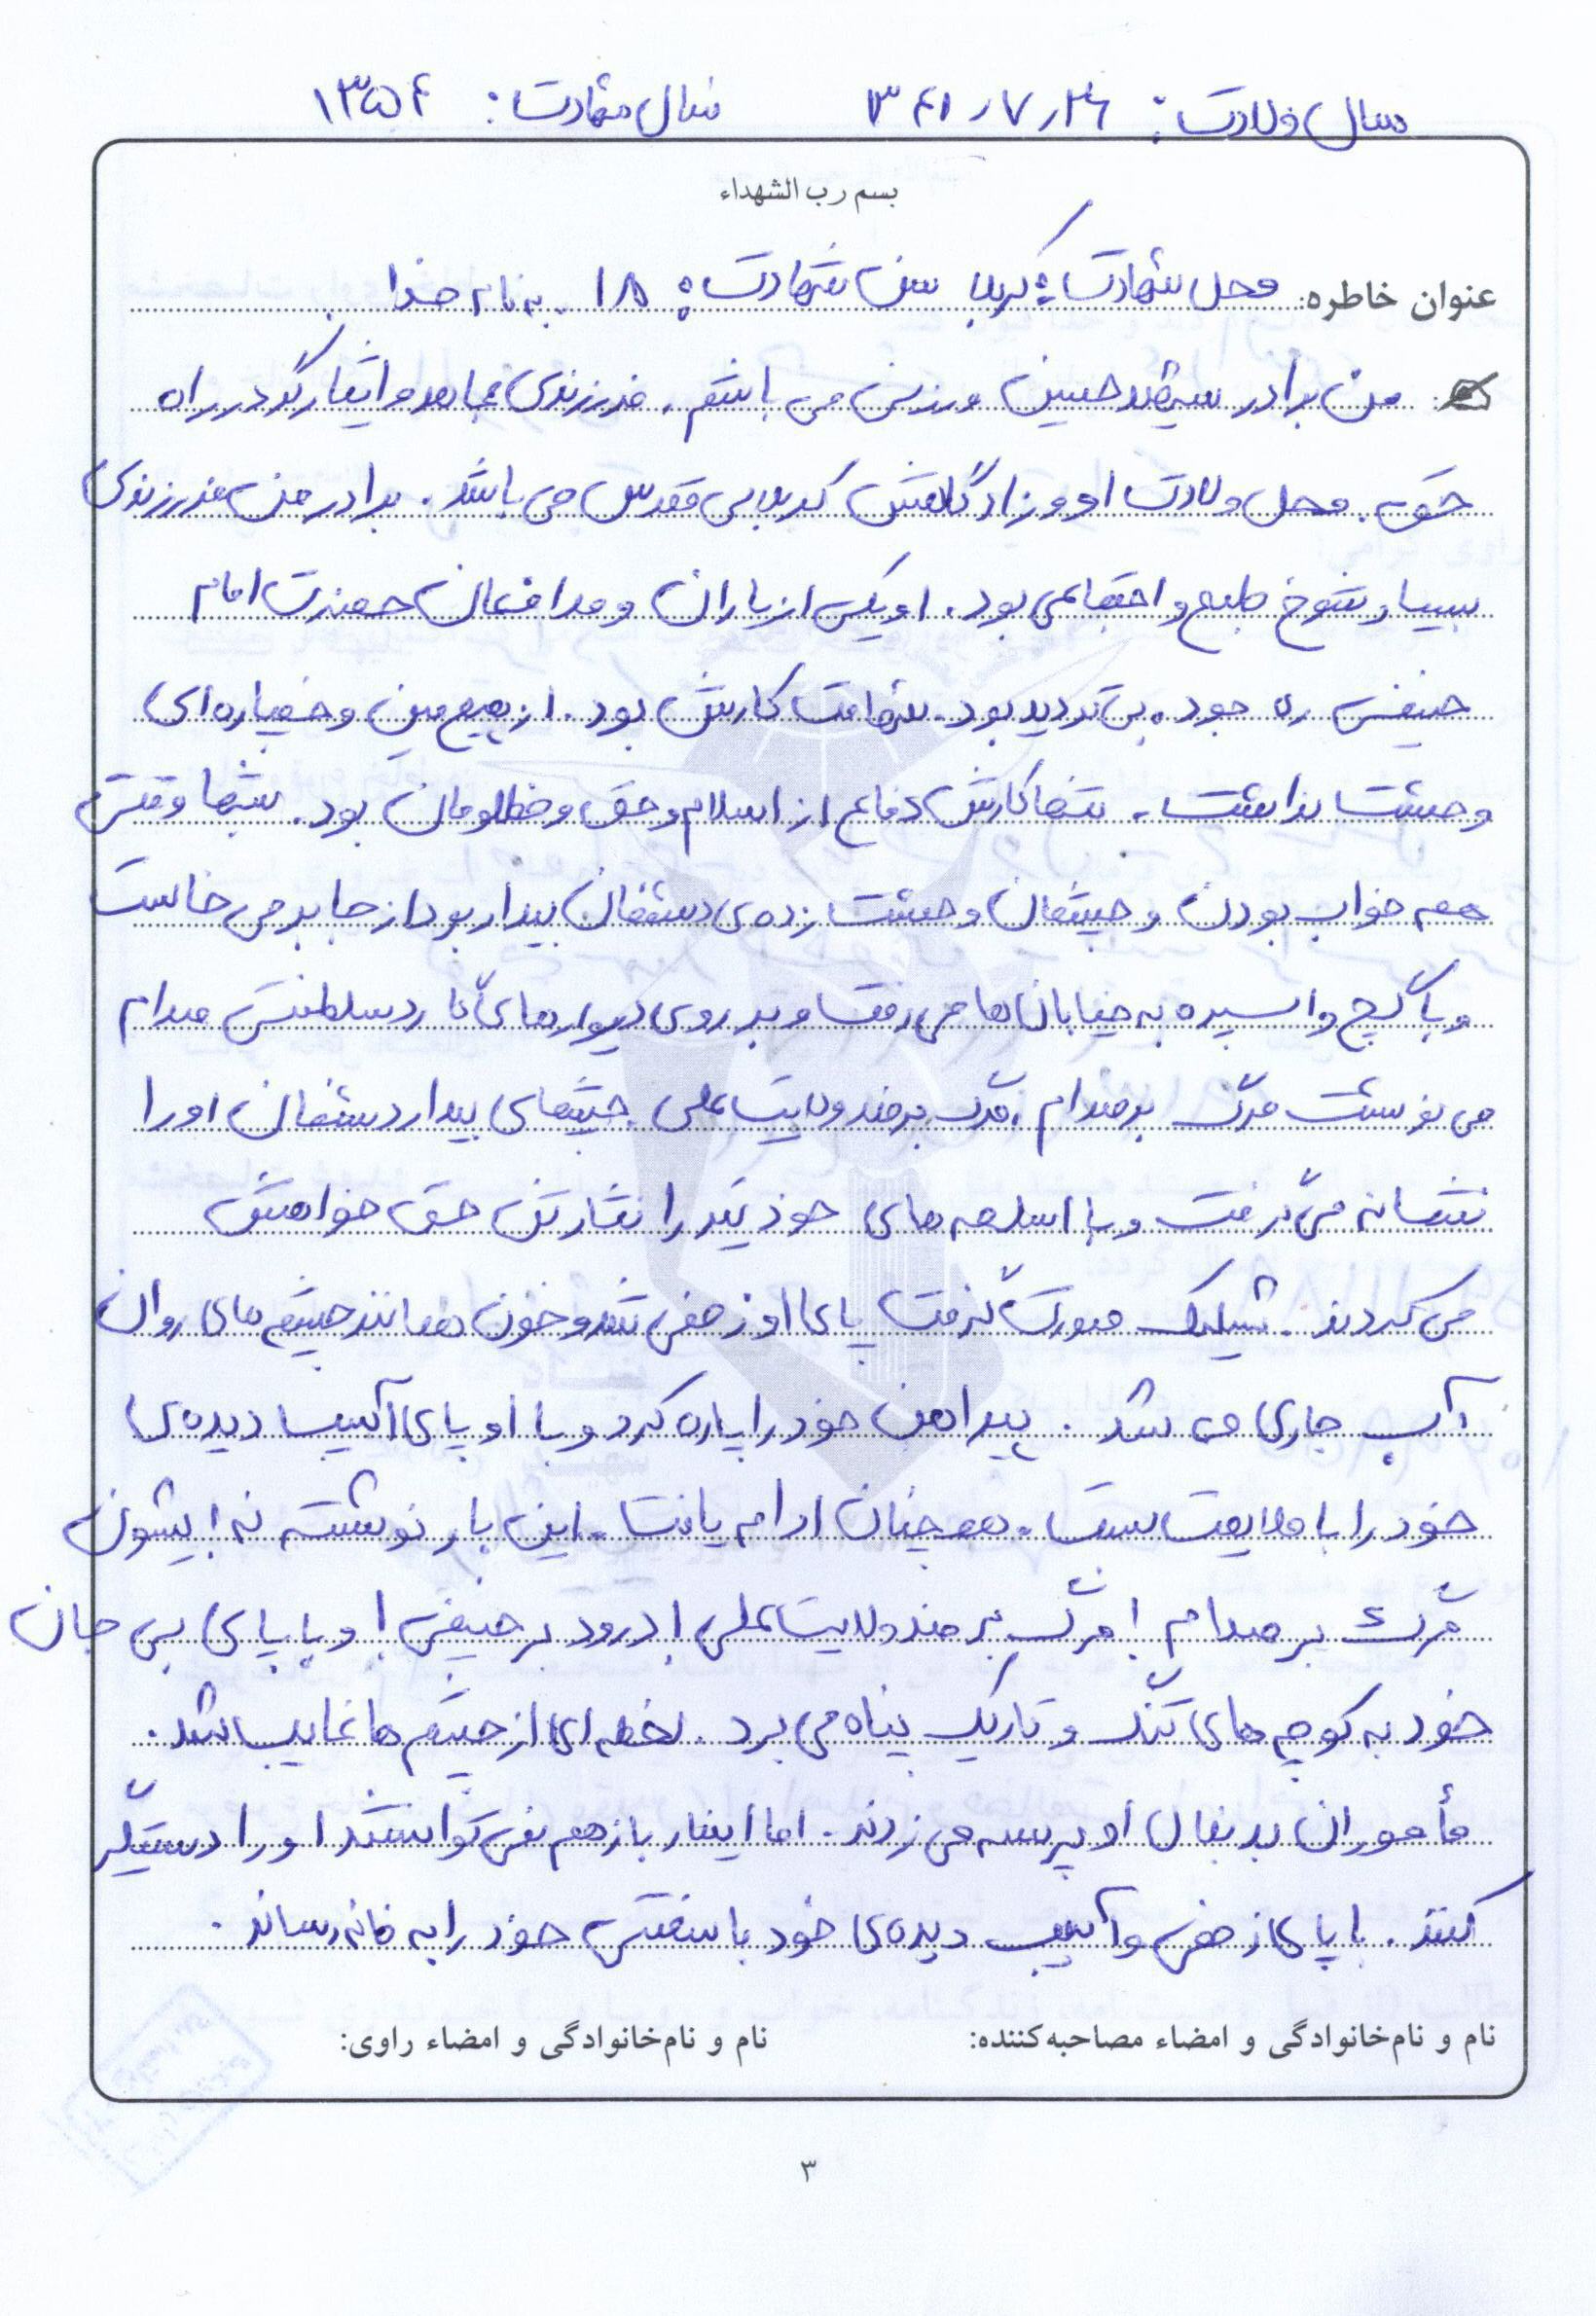 سال ولادت: ۱۳۴۱٫۷٫۲۶ سال شهادت: ۱۳۵۴
بسم رب الشهداء
عنوان خاطره: محل شهادت: کربلا سن شهادت: ۱۸ . به نام خدا
من برادر سید حسین می باشم. فرزندی مجاهد و ایثارگر در راه
حق. محل ولادت او و زادگاهش کربلای مقدس می باشد. برادر من فرزندی
بسیار شوخ طبع و اجتماعی بود. او یکی از یاران و مدافعان حضرت امام
خمینی ره بود. بی تردید بود. شهامت کارش بود. از هیچ مین و خمپاره ای
وحشت نداشت. تنها کارش دفاع از اسلام و حق و مظلومان بود. شبها وقتی
همه خواب بودن و چشمان وحشت زده ی دشمنان بیدار بود از جا بر می خاست
و با گچ و اسپره به خیابان ها می رفت و بر روی دیوارهای سلطنتی صدام
می نوشت مرگ بر صدام، مرگ بر ضد ولایت علی. چشمهای بیدار دشمنان او را
نشانه می گرفت و با اسلحه های خود تیر را نثار تن حق خواهش
می کردند. شلیک صورت گرفت پای او زخمی شد و خون همانند چشمه های روان
آب جاری می شد. پیراهن خود را پاره کرد و با او پای آسیب دیده ی
خود را با ملایمت بست. همچنان ادام یافت. این بار نوشته نه ایشون
مرگ بر صدام! مرگ بر ضد ولایت علی! درود بر خمینی! و با پای بی جان
خود به کوچه های تنگ و تاریک پناه می برد. لحظه ای از چشم ها غایب شد.
مأموران بدنبال او پرسه می زدند. اما اینبار باز هم نمی توانستند او را دستگیر
کنند. با پای زخمی و آسیب دیده ی خود با سختی خود را به خانه رساند.
نام و نام‌خانوادگی و امضاء مصاحبه‌کننده: نام و نام‌خانوادگی و امضاء راوی:
۳